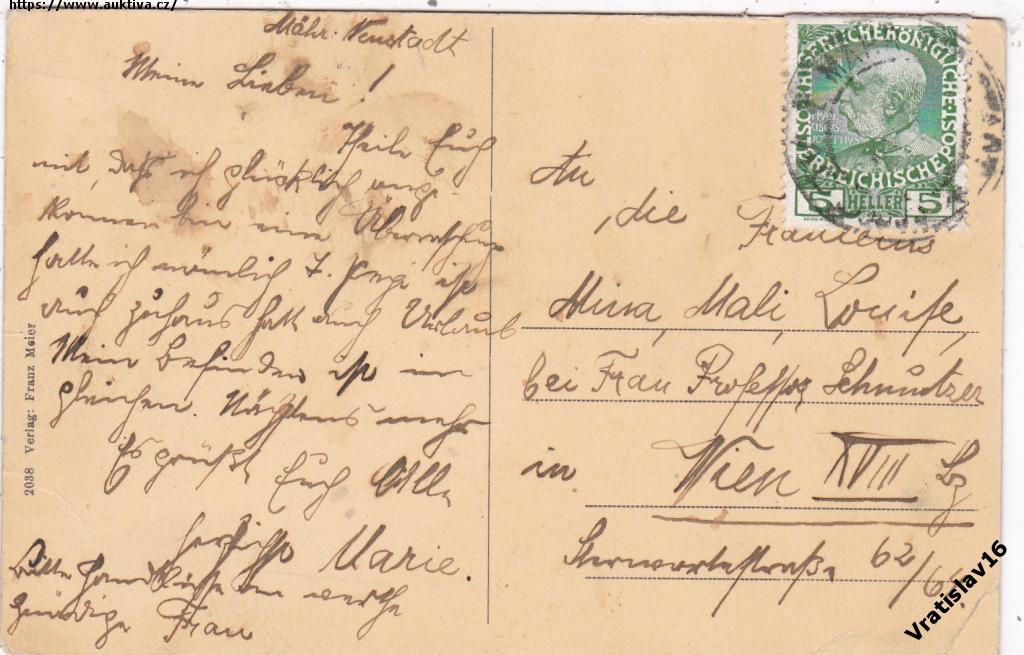 https://www.auktiva.cz/
Mähr. Neustadt
Meine Lieben!
Theile Euch
mit, daß ich glücklich ange
kommen bin eine Überraschung
hatte ich nämlich 7. ist
auch zuhaus hatt auch Urlaub
Mein Befinden ist im
gleichen. Nächstens mehr
Es grüßt Euch Alle
herzlichst Marie.
Bitte Handküße an werthe
Gnädige Frau
2038 Verlag: Franz Meier
KAISERLICHE KÖNIGLICHE POST
ÖSTERREICHISCHE
5 HELLER 5
An
die Fräuleins
Mina, Mali, Louise,
bei Frau Professor Schmutzer
in Wien XVIII Bz
Sternwartestraße 62/64
Vratislav16